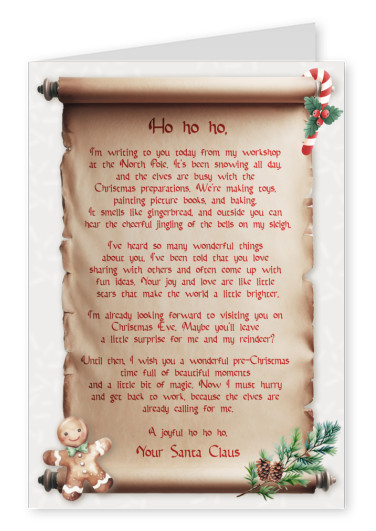 Ho ho ho,
I'm writing to you today from my workshop
at the North Pole. It's been snowing all day,
and the elves are busy with the
Christmas preparations. We're making toys,
painting picture books, and baking.
It smells like gingerbread, and outside you can
hear the cheerful jingling of the bells on my sleigh.
I've heard so many wonderful things
about you. I've been told that you love
sharing with others and often come up with
fun ideas. Your joy and love are like little
stars that make the world a little brighter.
I'm already looking forward to visiting you on
Christmas Eve. Maybe you'll leave
a little surprise for me and my reindeer?
Until then, I wish you a wonderful pre-Christmas
time full of beautiful moments
and a little bit of magic. Now I must hurry
and get back to work, because the elves are
already calling for me.
A joyful ho ho ho,
Your Santa Claus